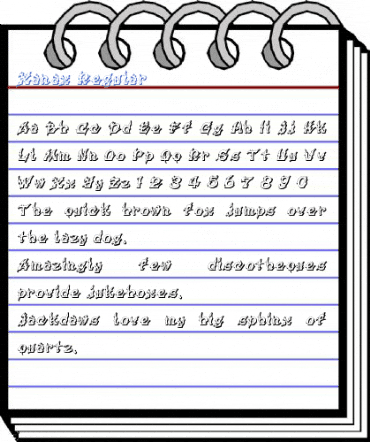 Xanax Regular
Aa Bb Cc Dd Ee Ff Gg Hh Ii Jj Kk
Ll Mm Nn Oo Pp Qq Rr Ss Tt Uu Vv
Ww Xx Yy Zz 1 2 3 4 5 6 7 8 9 0
The quick brown fox jumps over
the lazy dog.
Amazingly few discotheques
provide jukeboxes.
Jackdaws love my big sphinx of
quartz.